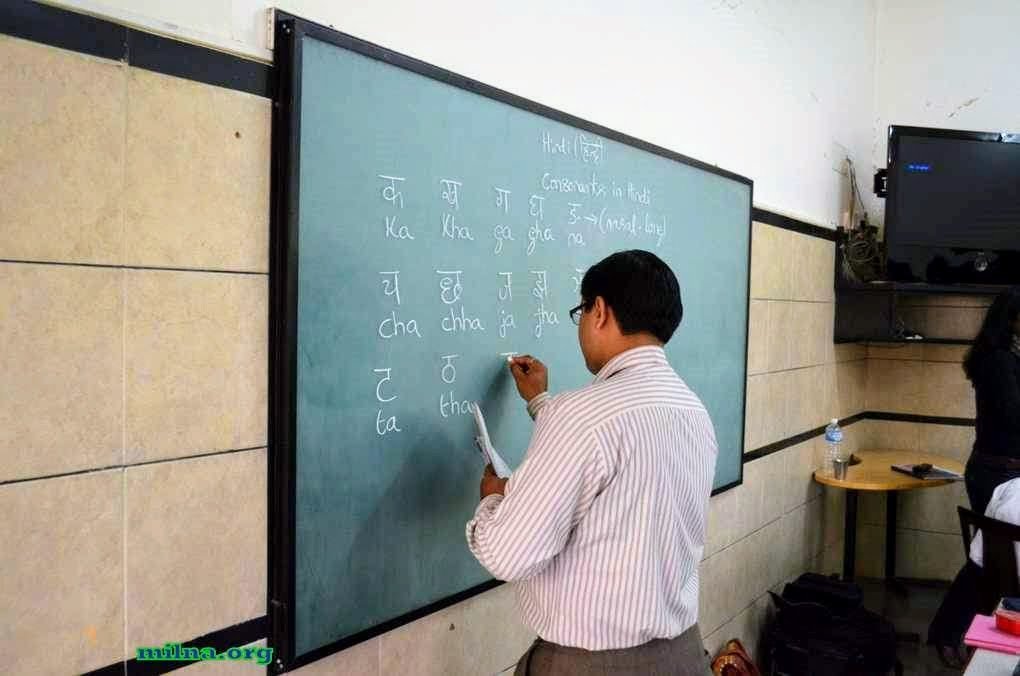 Hindi (हिन्दी
Consonants in Hindi
क ख ग घ ङ → (nasal
Ka Kha ga gha na
च छ ज झ
cha chha ja jha
ट ठ
ta tha
milna.org